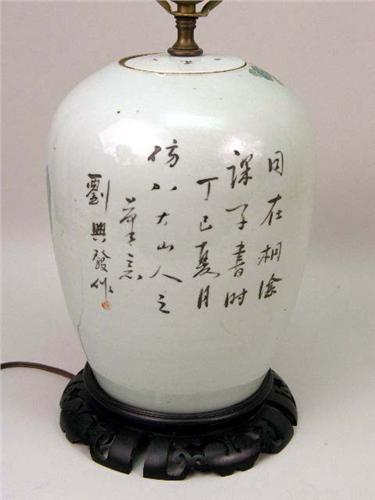 同在桐陰
課子書時
丁巳夏月
仿八大山人之
筆意
劉興發作